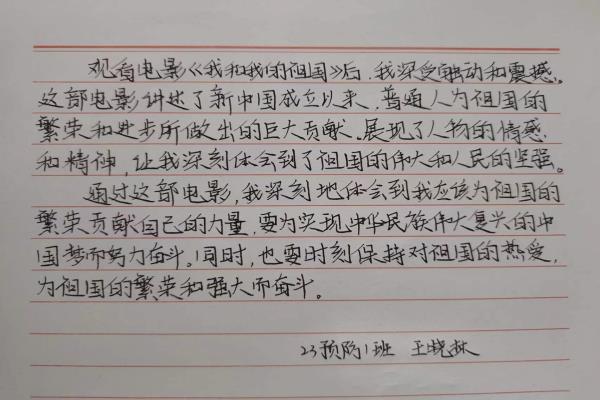 观看电影《我和我的祖国》后，我深受触动和震撼。
这部电影讲述了新中国成立以来，普通人为祖国的
繁荣和进步所做出的巨大贡献，展现了人物的情感
和精神，让我深刻体会到了祖国的伟大和人民的坚强。
通过这部电影，我深刻地体会到我应该为祖国的
繁荣贡献自己的力量，要为实现中华民族伟大复兴的中
国梦而努力奋斗。同时，也要时刻保持对祖国的热爱，
为祖国的繁荣和强大而奋斗。
23预防1班 王晓林